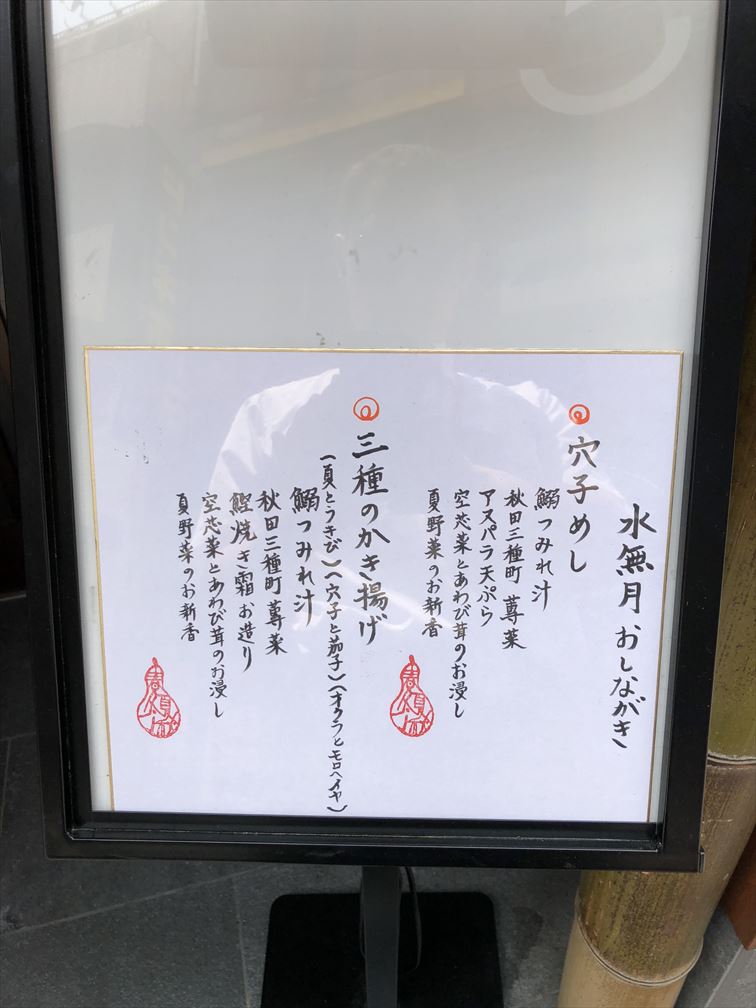 水無月 おしながき
穴子めし
鰯つみれ汁
秋田三種町 蓴菜
アスパラ天ぷら
空芯菜とあわび茸のお浸し
夏野菜のお新香
三種のかき揚げ
(夏とうきび)(穴子と茄子)(オクラとモロヘイヤ)
鰯つみれ汁
秋田三種町 蓴菜
鰹焼き霜お造り
空芯菜とあわび茸のお浸し
夏野菜のお新香